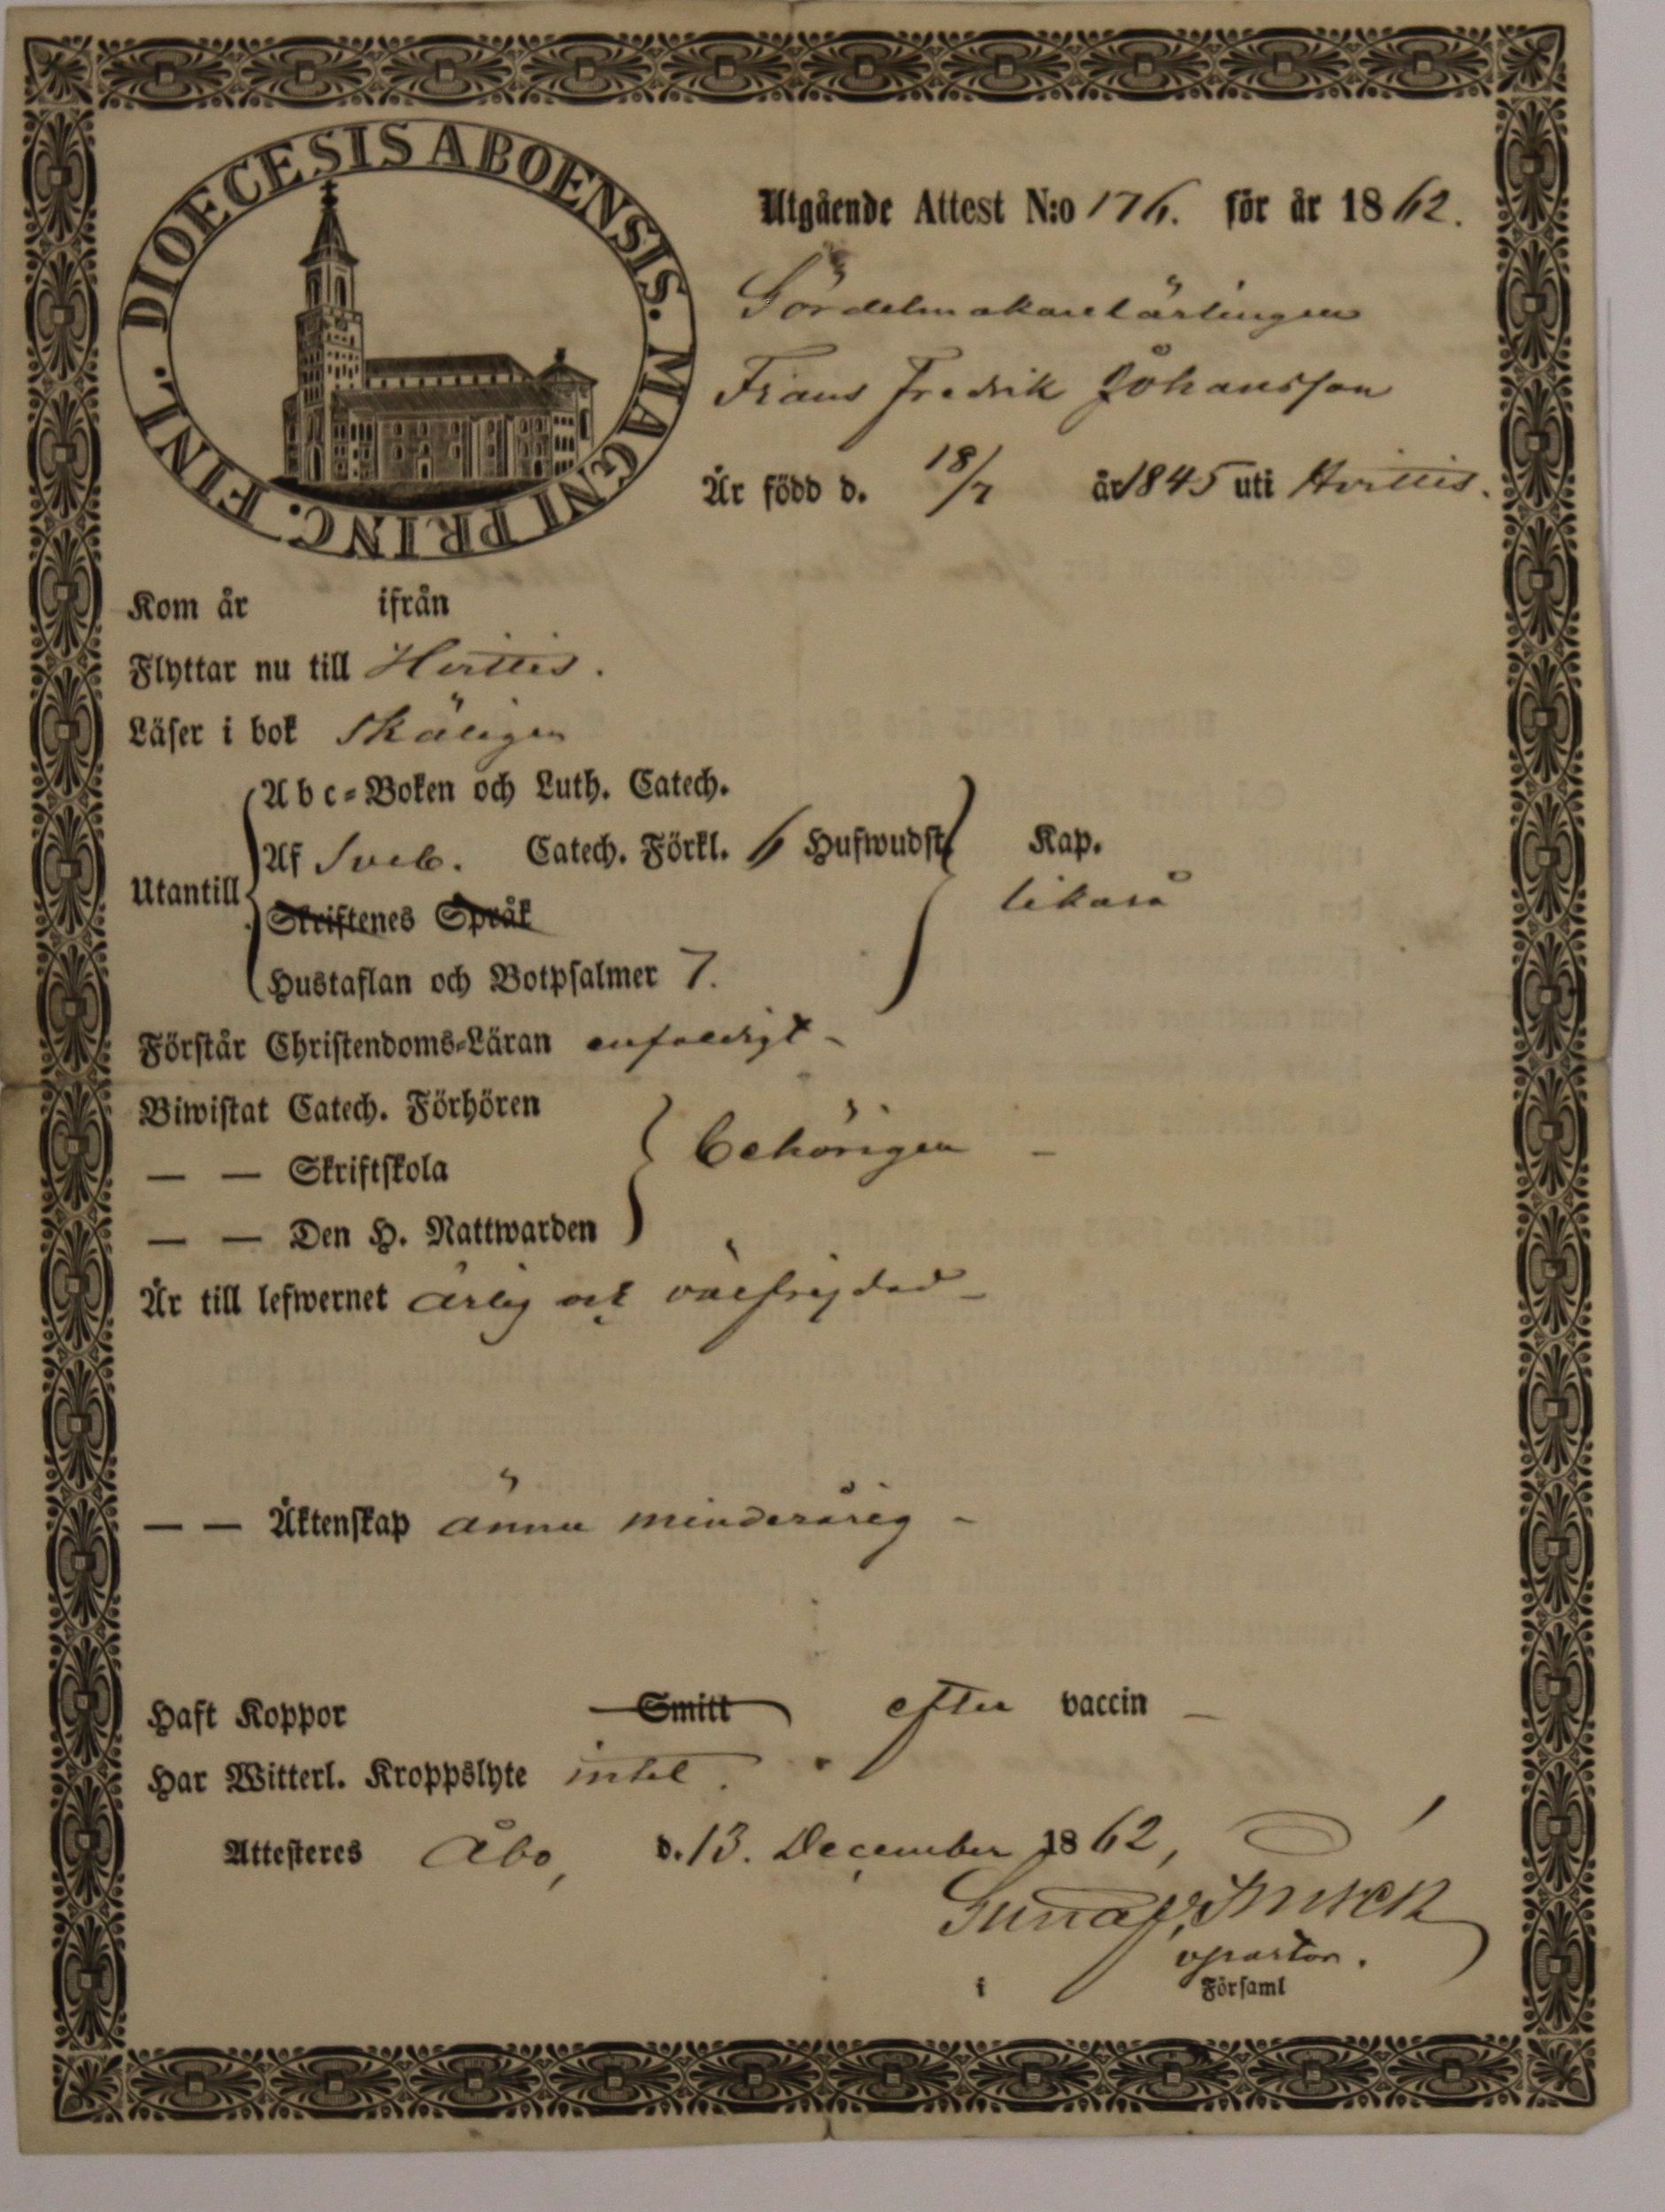 DIOECESIS ABOENSIS. MAGNI PRINC. FINL.
Utgående Attest N:o 176. för år 1862.
Gördelmakarelärlingen
Frans Fredrik Johansson
Är född d. 18/7 år 1845 uti Hvittis.
Kom år ifrån
Flyttar nu till Hvittis.
Läser i bok skäligen
Utantill
Abc-Boken och Luth. Catech.
Af Sveb. Catech. Förkl. 6 Hufwudst. Kap.
likaså
Skriftenes Språk
Hustaflan och Botpsalmer 7.
Förstår Christendoms-Läran enfaldigt -
Biwistat Catech. Förhören
— — Skriftskola behörigen -
— — Den H. Nattwarden
Är till lefwernet ärlig och välfrejdad -
— — Äktenskap ännu minderårig -
Haft Koppor Smitt efter vaccin -
Har Witterl. Kroppslyte intet.
Attesteres Åbo, d. 13. December 1862,
Gustaf
vpastor.
i Församl